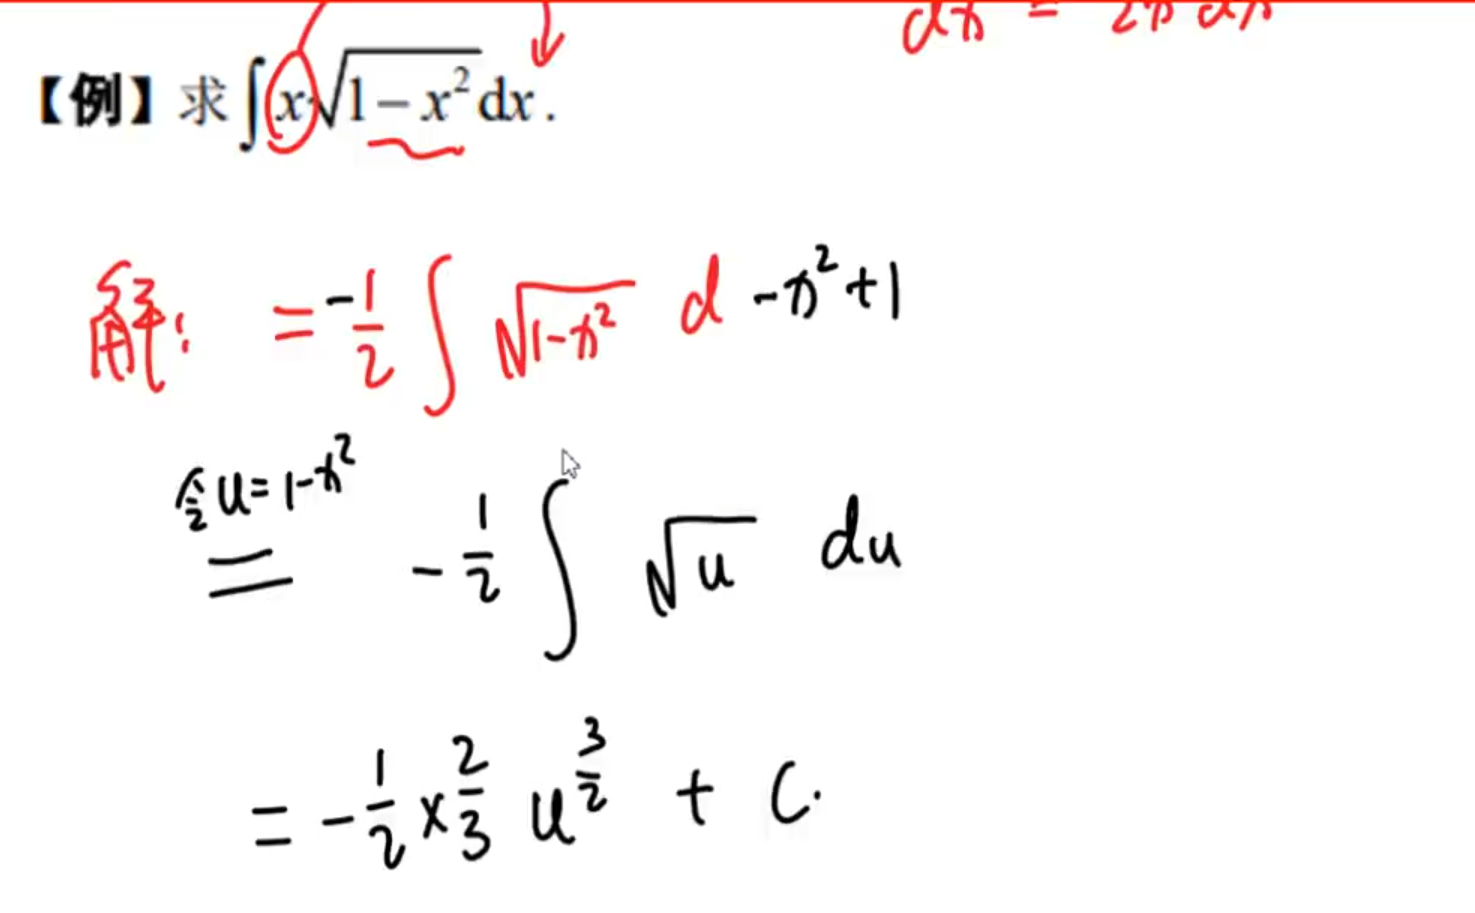 dx² = 2x dx
【例】求∫x√(1−x²)dx.
解: = -1/2 ∫ √(1-x²) d -x²+1
令u=1-x²
= -1/2 ∫ √u du
= -1/2 × 2/3 u^(3/2) + C.